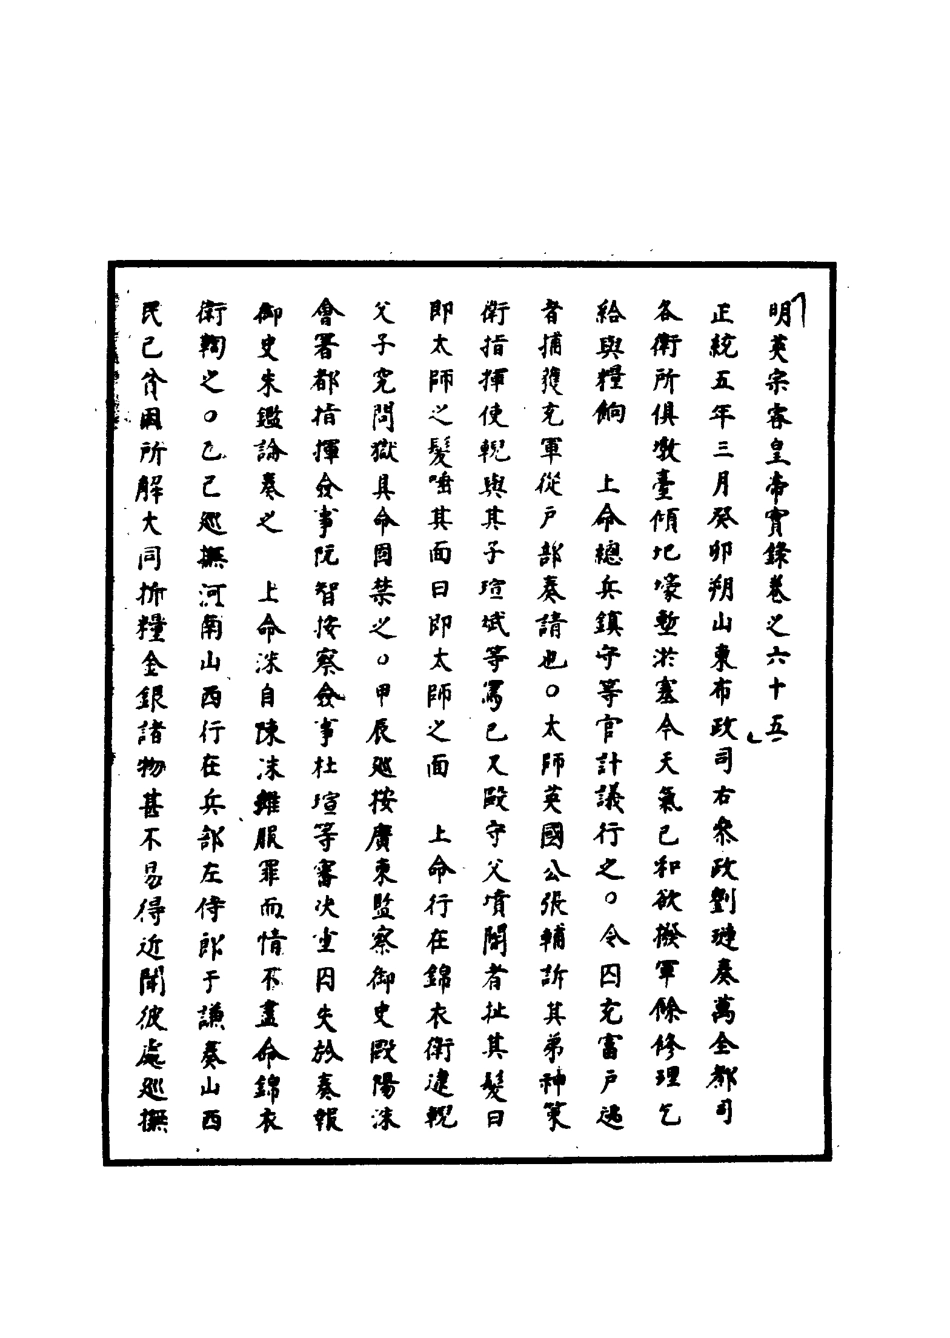 明英宗睿皇帝實錄卷之六十五
正統五年三月癸卯朔山東布政司右叅政劉璉奏萬全都司
各衛所俱墩臺傾圮壕塹淤塞今天氣已和欲撥軍餘修理乞
給與糧餉　上命總兵鎮守等官計議行之○令囚充富戶逃
者捕獲充軍從戶部奏請也○太師英國公張輔訴其弟神策
衛指揮使輗與其子瑄斌等罵已又毆守父墳閽者扯其髮曰
即太師之髮唾其面曰即太師之面　上命行在錦衣衛逮輗
父子究問獄具命固禁之○甲辰廵按廣東監察御史歐陽洙
會署都指揮僉事阮智按察僉事杜瑄等審决重囚失於奏報
御史朱鑑論奏之　上命洙自陳洙雖服罪而情不盡命錦衣
衛鞫之○乙巳廵撫河南山西行在兵部左侍郎于謙奏山西
民已貧困所解大同折糧金銀諸物甚不易得近聞彼處廵撫